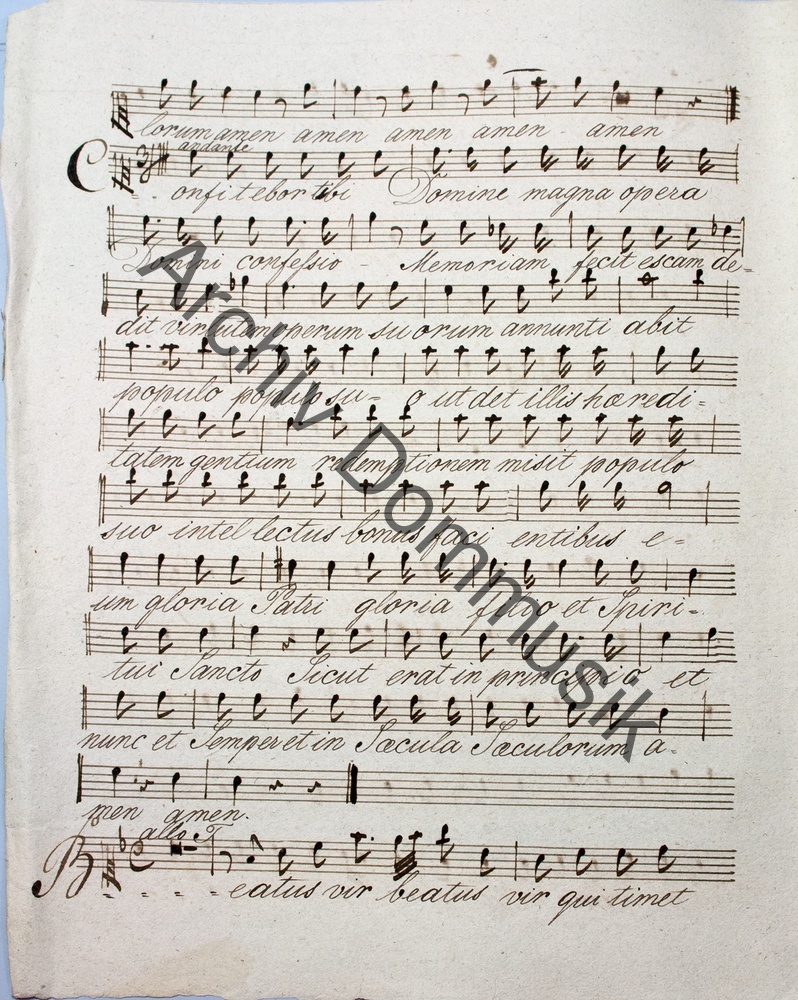 lorum amen amen amen amen - amen
andante
Confitebor tibi Domine magna opera
Domini confessio - Memoriam fecit escam de=
dit virtutem operum suorum annunti abit
populo populo su= o ut det illis hæredi=
tatem gentium redemptionem misit populo
suo intellectus bonus faci entibus e=
um gloria Patri gloria filio et Spiri=
tui Sancto Sicut erat in principio et
nunc et Semper et in Sæcula Sæculorum a=
men amen.
allo
Beatus vir beatus vir qui timet
Archiv Dommusik